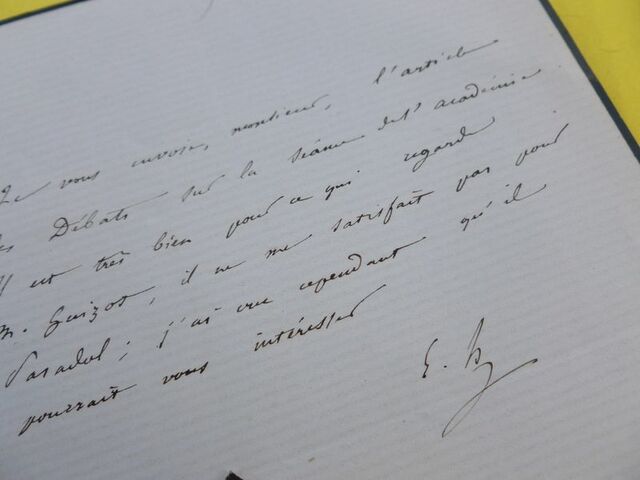 Je vous envoie, monsieur, l'article
des Débats sur la séance de l'académie
Il est très bien pour ce qui regarde
M. Guizot, il ne me satisfait pas pour
Paradol ; j'ai cru cependant qu'il
pourrait vous intéresser